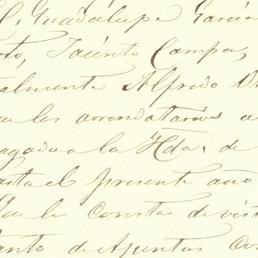 C. Guadalupe García
oto, Jacinto Campa,
almente Alfredo
los arrendatarios a
agado a la Hda. de
asta el presente año
que le consta de vis
anto de Apuntes